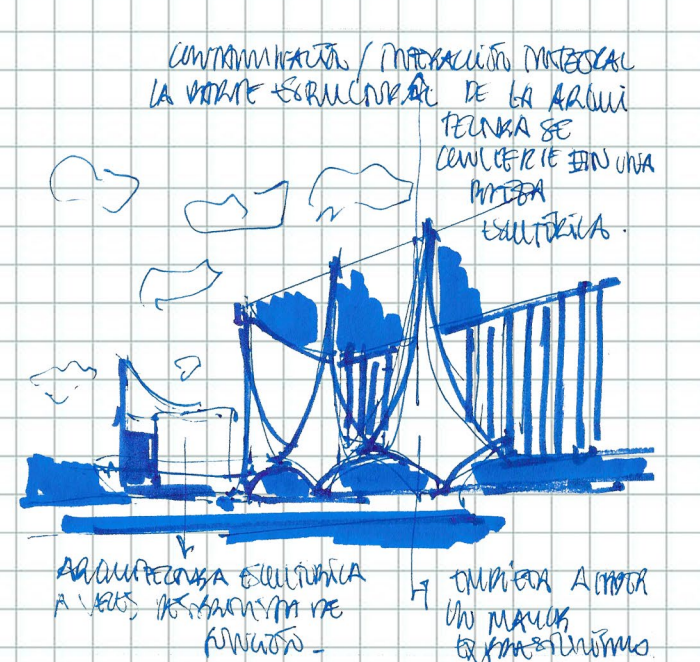 CONTAMINACIÓN / INTERACCIÓN INTEGRAL
LA PARTE ESTRUCTURAL DE LA ARQUI
TECTURA SE
CONVIERTE EN UNA
PIEZA
ESCULTÓRICA.
ARQUITECTURA ESCULTÓRICA
A VECES DE
FUNCIÓN_
EMPIEZA A
UN MAYOR